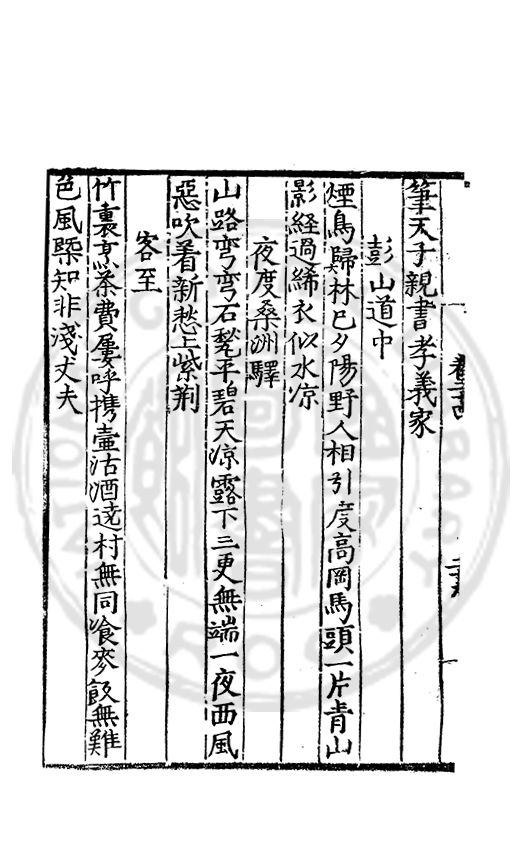 筆天子親書孝義家
彭山道中
煙鳥歸林已夕陽野人相引度高岡馬頭一片青山
影経過絺衣似水凉
夜度桑洲驛
山路弯弯石甃平碧天凉露下三更無端一夜西風
惡吹着新愁上紫荊
客至
竹裏烹茶費屢呼携壷沽酒遶村無同飡麥飯無難
色風槩知非淺丈夫